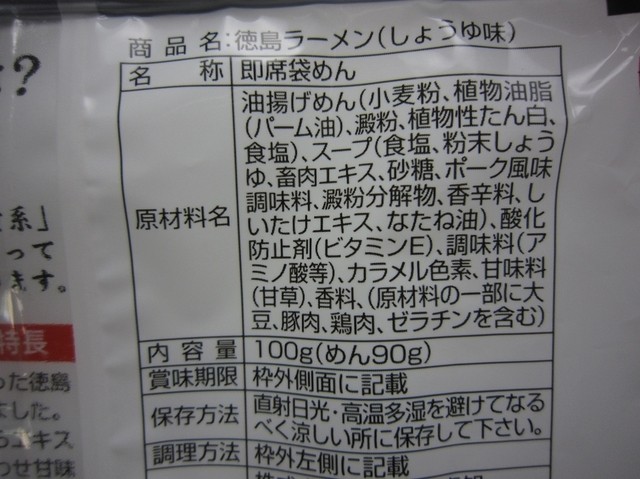 商品名:徳島ラーメン(しょうゆ味)
名称 即席袋めん
原材料名
油揚げめん(小麦粉、植物油脂
(パーム油)、澱粉、植物性たん白、
食塩)、スープ(食塩、粉末しょう
ゆ、畜肉エキス、砂糖、ポーク風味
調味料、澱粉分解物、香辛料、し
いたけエキス、なたね油)、酸化
防止剤(ビタミンE)、調味料(ア
ミノ酸等)、カラメル色素、甘味料
(甘草)、香料、(原材料の一部に大
豆、豚肉、鶏肉、ゼラチンを含む)
内容量 100g(めん90g)
賞味期限 枠外側面に記載
保存方法 直射日光・高温多湿を避けてなる
べく涼しい所に保存して下さい。
調理方法 枠外左側に記載
?
系」
って
ます。
特長
った徳島
ました。
エキス
わせ甘味